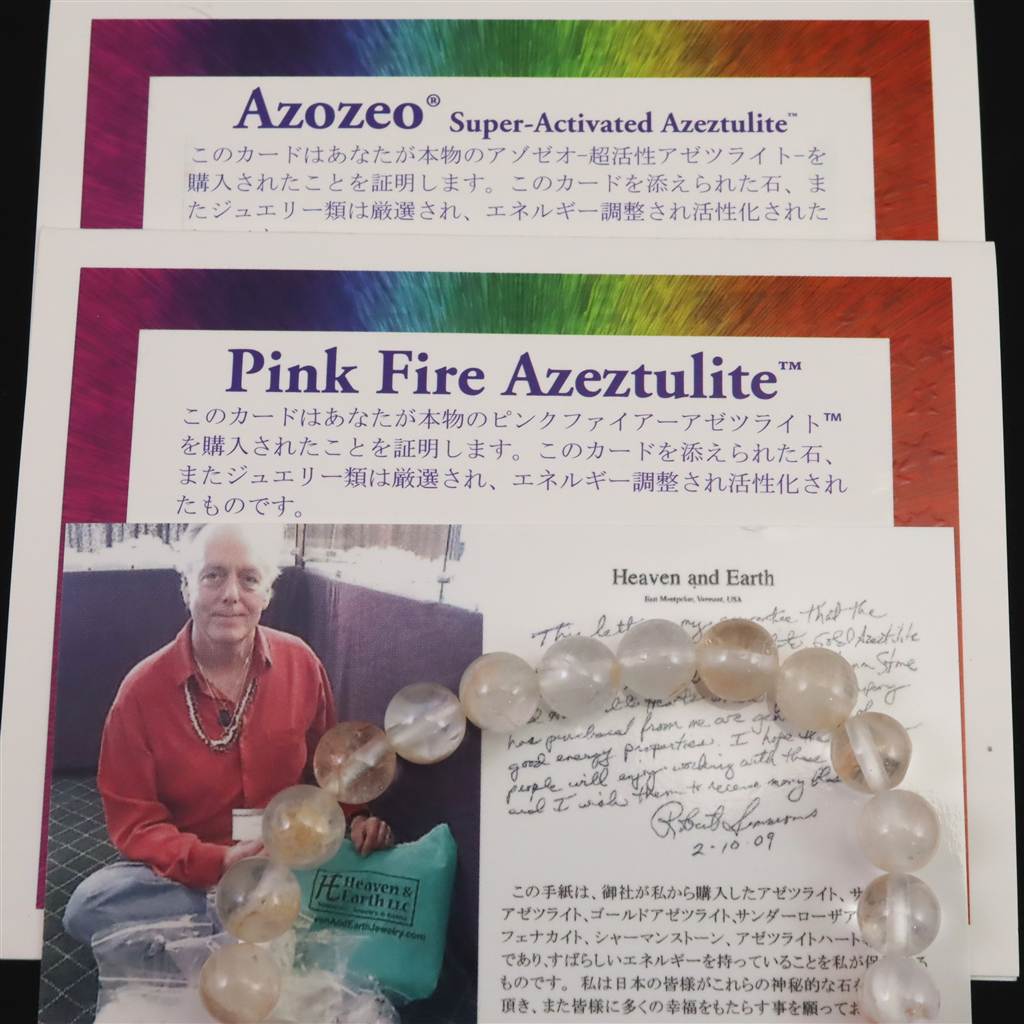 Azozeo® Super-Activated Azeztulite™
このカードはあなたが本物のアゾゼオ-超活性アゼツライト-を
購入されたことを証明します。このカードを添えられた石、ま
たジュエリー類は厳選され、エネルギー調整され活性化された
Pink Fire Azeztulite™
このカードはあなたが本物のピンクファイアーアゼツライト™
を購入されたことを証明します。このカードを添えられた石、
またジュエリー類は厳選され、エネルギー調整され活性化され
たものです。
Heaven and Earth
East Montpelier, Vermont, USA
This my that the
Gold Azeztulite
has purchased from me are
good energy properties. I hope
people will enjoy working with these
and I wish them to receive many
Robert Simmons
2-10-09
HE Heaven &
Earth LLC
AndEarthJewelry.com
この手紙は、御社が私から購入したアゼツライト、サ
アゼツライト、ゴールドアゼツライト、サンダーローザア
フェナカイト、シャーマンストーン、アゼツライトハート
であり、すばらしいエネルギーを持っていることを私が保
ものです。 私は日本の皆様がこれらの神秘的な石
頂き、また皆様に多くの幸福をもたらす事を願ってお